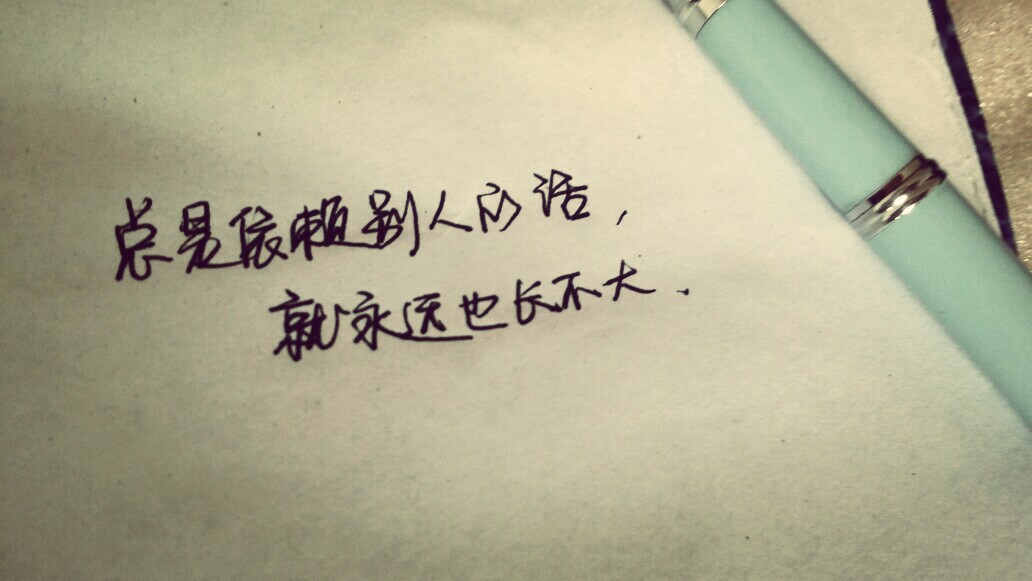 总是依赖别人的话，
就永远也长不大.